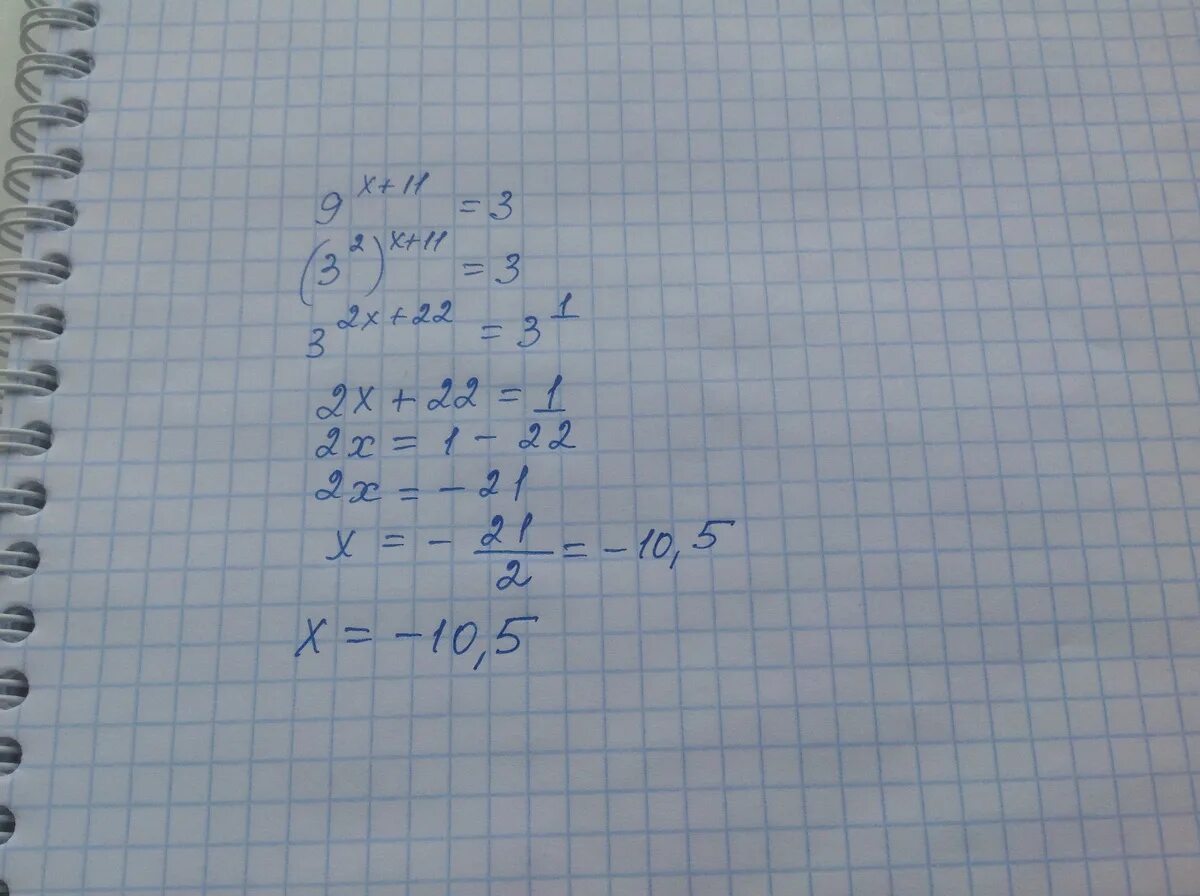 9^{x+11} = 3
(3^2)^{x+11} = 3
3^{2x+22} = 3^1
2x + 22 = 1
2x = 1 - 22
2x = - 21
x = - \frac{21}{2} = -10,5
x = -10,5